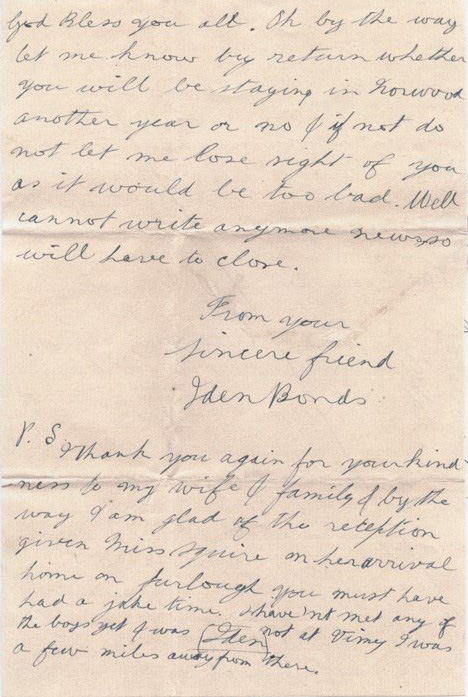 God Bless you all. Oh by the way
let me know by return whether
you will be staying in Norwood
another year or no & if not do
not let me lose sight of you
as it would be too bad. Well
cannot write anymore news so
will have to close.
From your
sincere friend
Iden Bonds
P. S. Thank you again for your kind-
ness to my wife & family & by the
way I am glad of the reception
given Miss Squire on her arrival
home on furlough you must have
had a jake time. I have'nt met any of
the boys yet & was (Iden) not at Vimy I was
a few miles away from there.